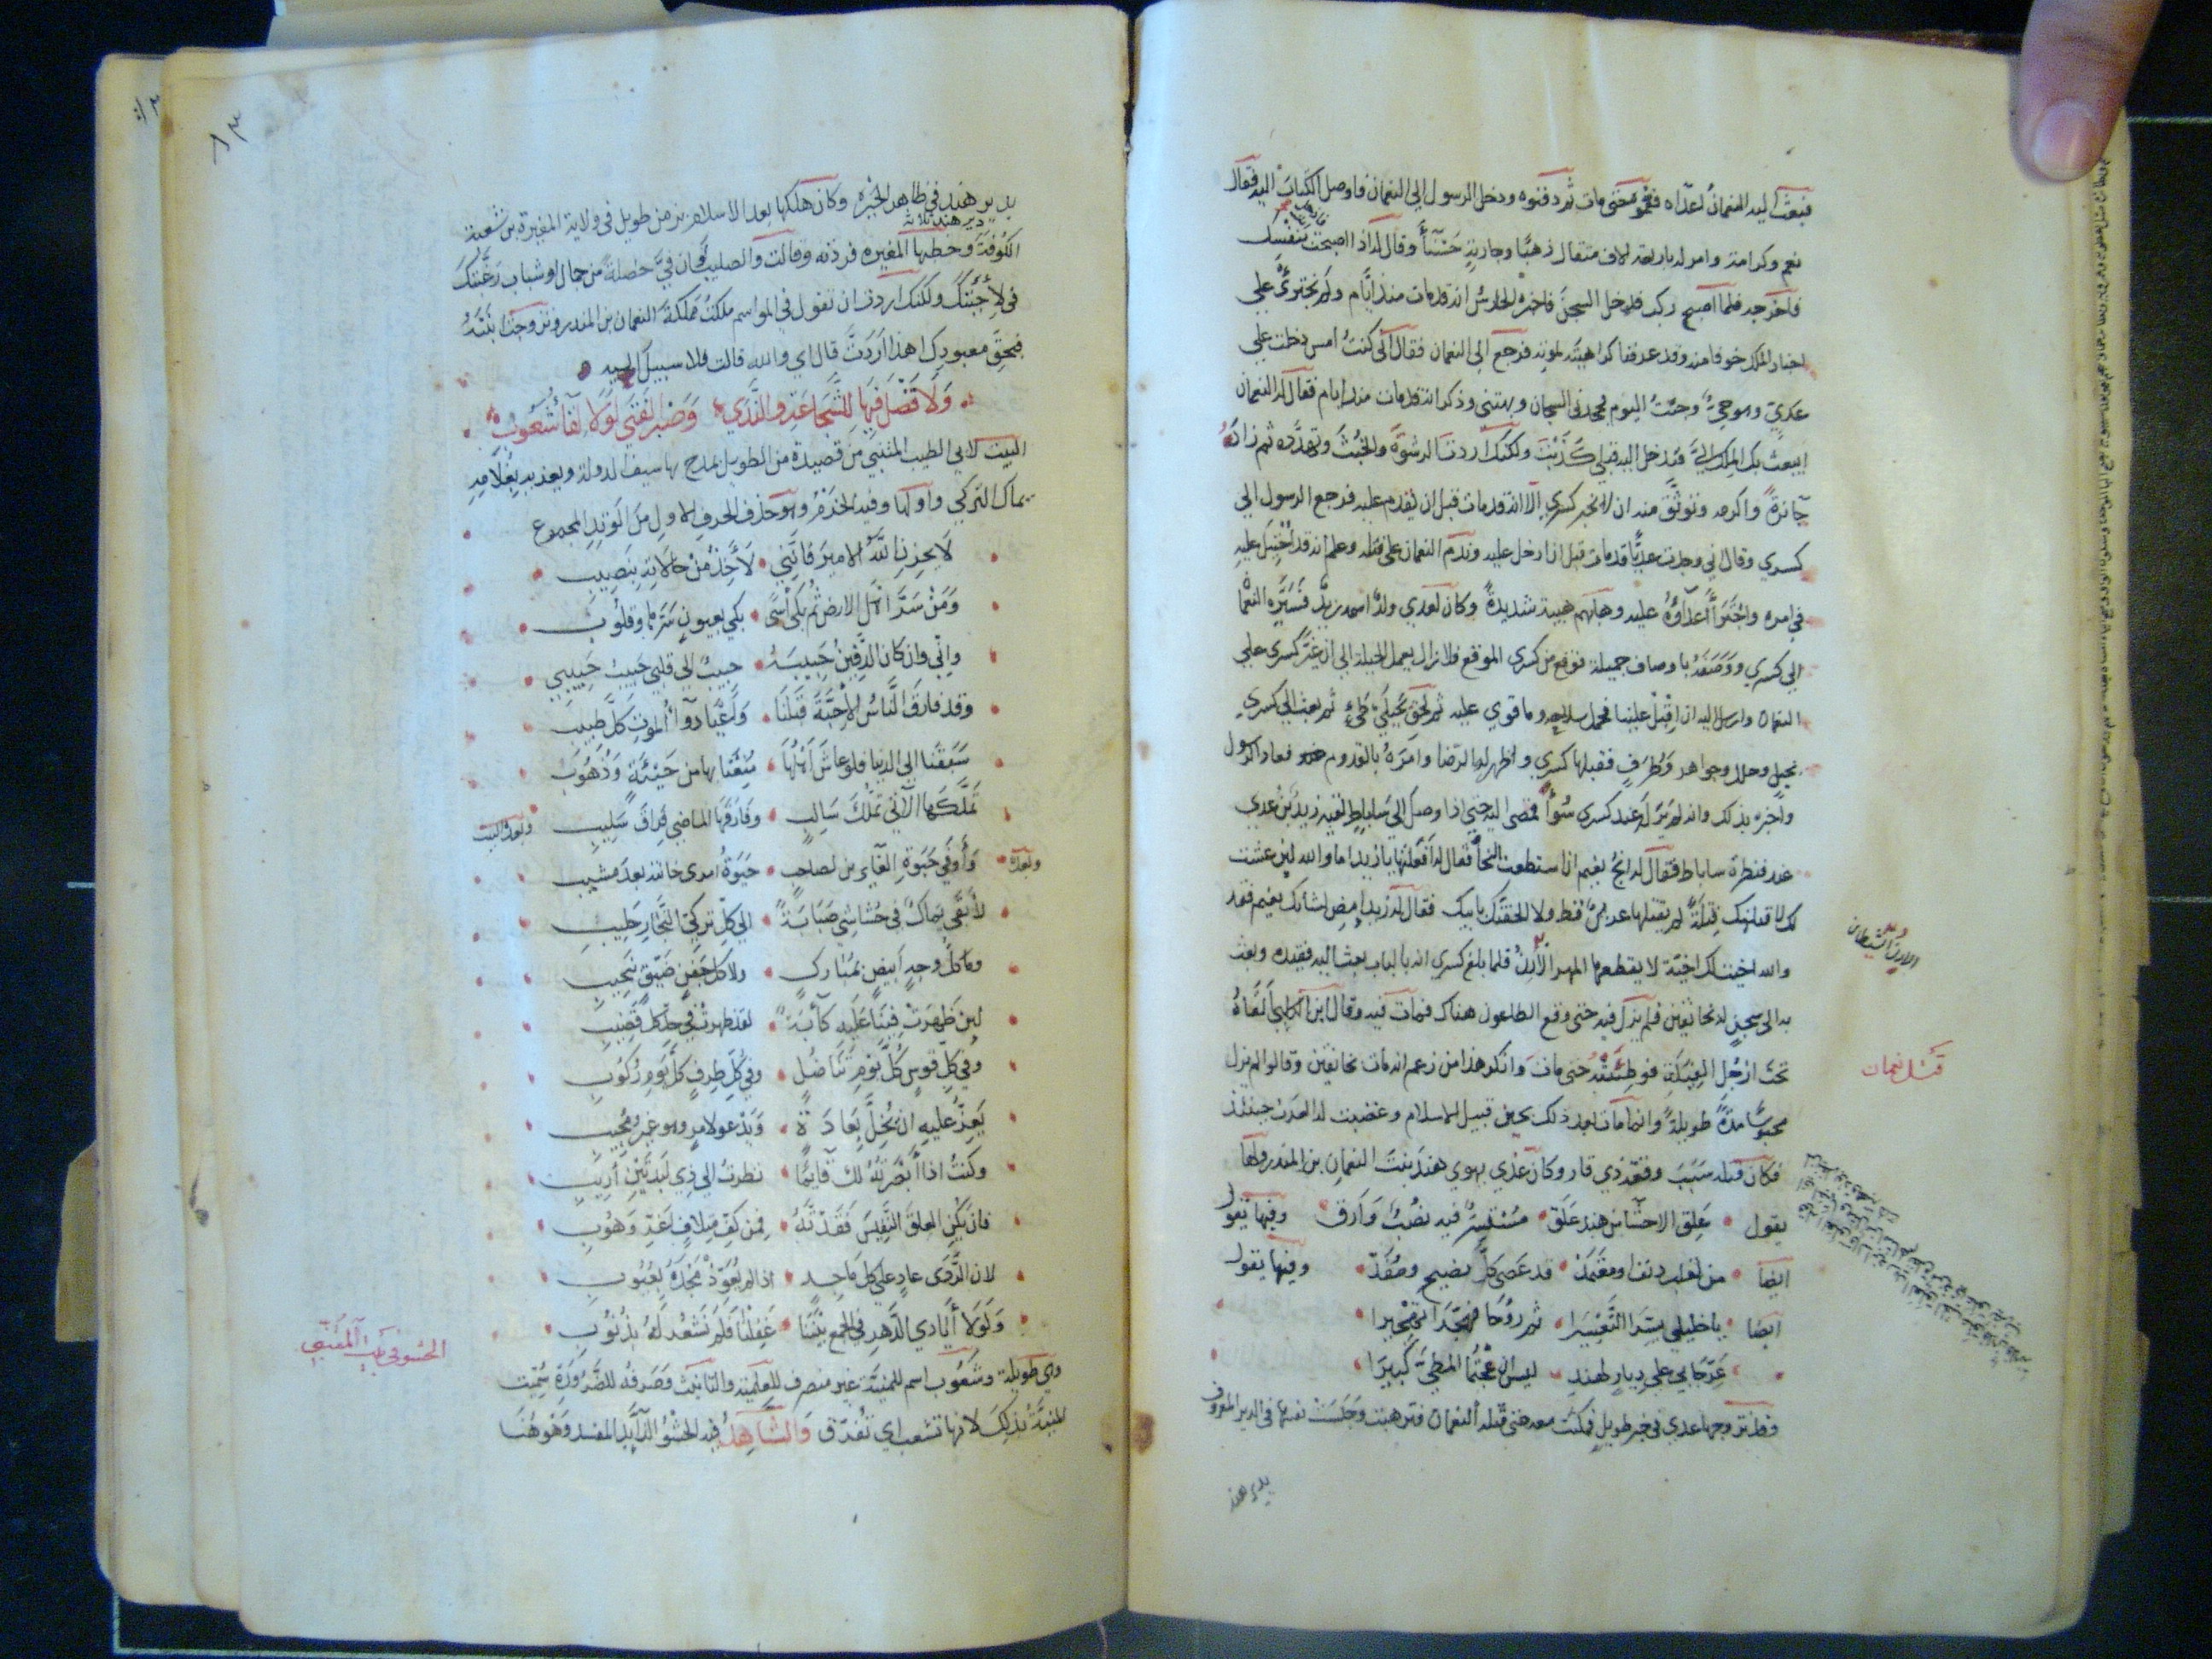 فبعث اليه النعمان اعداه فغموه حتى مات ثم دفنوه ودخل الرسول الى النعمان فاوصل الكتاب اليه فقال
نعم وكرامة وامر له باربعة الاف مثقال ذهبا وجارية حسنا وقال له اذا اصبحت بنفسك
فاخرجه فلما اصبح ركب فدخل السجن فاخبره الحارس انه قد مات منذ ايام ولم نجترئ على
اخبار الملك خوفا منه وقد عرفنا كراهيته لموته فرجع الى النعمان فقال اني كنت امس دخلت على
عدي وهو حي وجئت اليوم فجحدني السجان وبهتني وذكر انه قد مات منذ ايام فقال له النعمان
ايبعث بك الملك الي فتدخل اليه قبلي كذبت ولكنك اردت الرشوة والخبث وتهدده ثم زاده
جائزة واكرمه وتوثق منه ان لا يخبر كسرى الا انه قد مات قبل ان يقدم عليه فرجع الرسول الى
كسري وقال اني وجدت عديا قد مات قبل ان ادخل عليه وندم النعمان على قتله وعلم انه قد احتيل عليه
في امره واجترأ اعداؤه عليه وهابهم هيبة شديدة وكان لعدي ولد اسمه زيد فسيره النعمان
الى كسري ووصفه باوصاف جميلة فوقع من كسرى الموقع فلا زال يعمل الحيلة الى ان غير كسرى على
النعمان وارسل اليه ان اقبل علينا فحمل سلاحه وما قوي عليه ثم لحق بجبلي طيء ثم بعث الى كسري
بخيل وحلل وجواهر وطرف فقبلها كسري واظهر له الرضا وامره بالقدوم فعاد الرسول
واخبره بذلك وانه لم ير له عند كسري سوأ فمضى اليه حتى اذا وصل الى ساباط لقيه زيد بن عدي
عند قنطرة ساباط فقال له انج نعيم ان استطعت النجا فقال له افعلتها يا زيد اما والله لين عشت
لك لاقتلنك قتلة لم يقتلها عربي قط ولالحقنك بابيك فقال له زيد امض لشانك نعيم فقد
والله اخيت لك اخية لا يقطعها المهر الارن فلما بلغ كسرى انه بالباب بعث اليه فقيده وبعث
به الى سجن له بخانقين فلم يزل فيه حتى وقع الطاعون هناك فمات فيه وقال ابن الكلبي القاه
تحت ارجل الفيلة فوطئته حتى مات وانكر هذا من زعم انه مات بخانقين وقالوا لم يزل
محبوسا مدة طويلة وانما مات بعد ذلك بحين قبيل الاسلام وغضبت له العرب حينئذ
فكان قتله سبب وقعة ذي قار وكان عدي يهوى هند بنت النعمان بن المنذر ولها
يقول علق الاحشا من هند علق مستسر فيه نصب وارق وفيها يقول
ايضا من لقلب دنف او معتمد قد عصى كل نصيح ومفد وفيها يقول
ايضا يا خليلي يسرا التعسيرا ثم روحا فهجرا تهجيرا
عرجا بي على ديار لهند ليس ان عجتما المطي كبيرا
وقد تزوجها عدي في خبر طويل فمكثت معه حتى قتله النعمان فترهبت وحبست نفسها في الدير المعروف
بدير هند
الارن النشيط
قتل نعمان
بدير هند في ظاهر الحيره وكان هلكها بعد الاسلام بزمن طويل في ولاية المغيرة بن شعبة
الكوفة وخطبها المغيره فردته وقالت والصليب لو ان في خصلة من جمال او شباب رغبتك
في لاجبتك ولكنك اردت ان تقول في المواسم ملكت مملكة النعمان بن المنذر وتزوجت ابنته
فبحق معبودك اهذا اردت قال اي والله قالت فلا سبيل اليه
ولا فضل فيها للشجاعة والندى وصبر الفتى لولا لقا شعوب
البيت لابي الطيب المتنبي من قصيدة من الطويل يمدح بها سيف الدولة ويعزيه بغلامه
يماك التركي واولها وفيه الخرم وهو حذف الحرف الاول من الوتد المجموع
لا يحزن الله الامير فانني لآخذ من حالاته بنصيب
ومن سر اهل الارض ثم بكى أسى بكى بعيون سرها وقلوب
واني وان كان الدفين حبيبه حبيب الى قلبي حبيب حبيبي
وقد فارق الناس الاحبة قبلنا واعيا دوآ الموت كل طبيب
سبقنا الى الدنيا فلو عاش اهلها منعنا بها من جيئة وذهوب
تملكها الآتي تملك سالب وفارقها الماضي فراق سليب وبعده البيت
وبعده وأوفى حيوة الغابرين لصاحب حيوة امرئ خانته بعد مشيب
لابقى يماك في حشاشتي صبابة الى كل تركي النجار جليب
وما كل وجه ابيض بمبارك ولا كل جفن ضيق بنجيب
لين ظهرت فينا عليه كآبة لقد ظهرت في حد كل قضيب
وفي كل قوس كل يوم تناضل وفي كل طرف كل يوم ركوب
يعز عليه ان يخل بعادة ويدعو لامر وهو غير مجيب
وكنت اذا ابصرته لك قايما نظرت الى ذي لبدتين اريب
فان يكن العلق النفيس فقدته فمن كف متلاف اغر وهوب
لان الردى عاد على كل ماجد اذا لم يعوذ مجده بعيوب
ولولا أيادي الدهر في الجمع بيننا غفلنا فلم نشعر له بذنوب
وهي طويلة وشعوب اسم للمنية غير منصرف للعلمية والتانيث وصرفه للضرورة سميت
المنية بذلك لانها تشعب اي تفرق والشاهد فيه الحشو الزايد المفسد وهو هنا
الحشو في بيت المتنبي